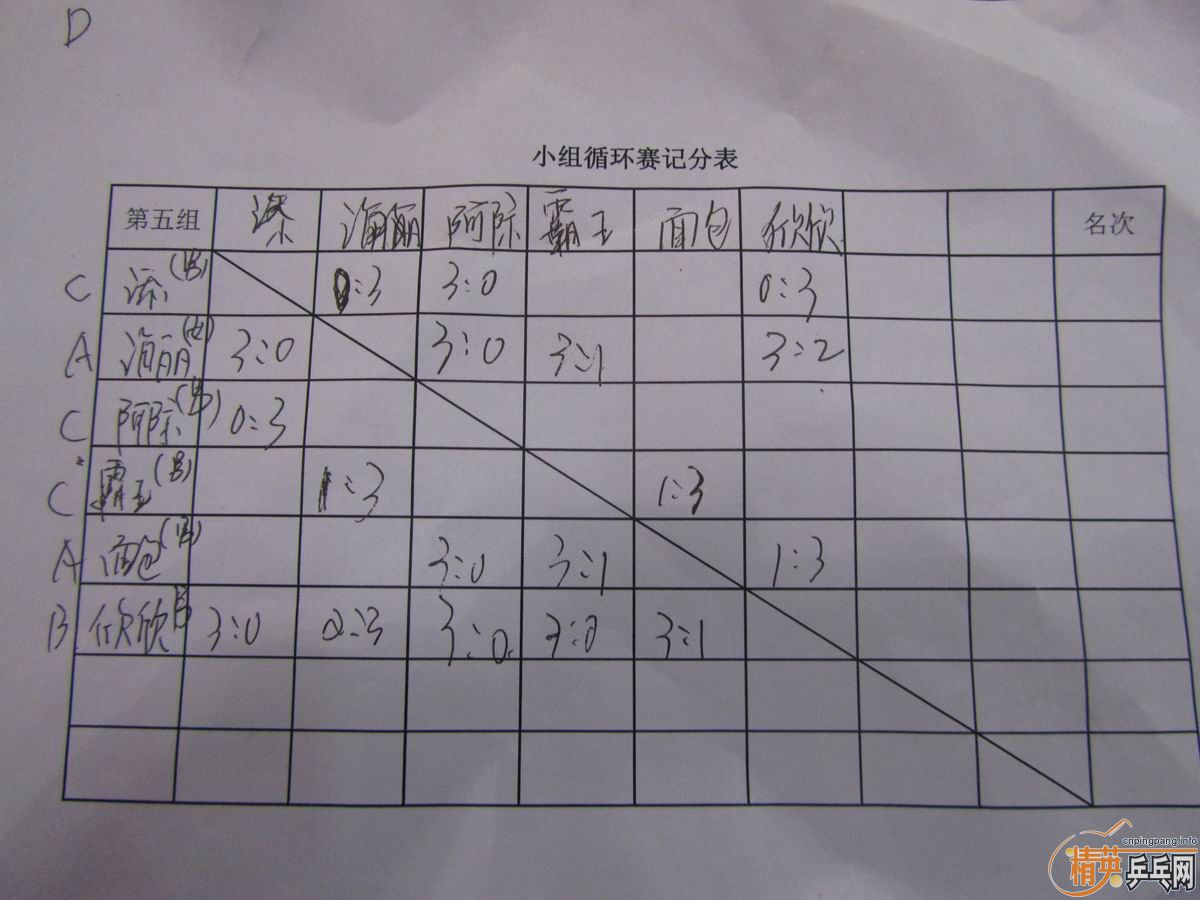 D
小组循环赛记分表
第五组 阿际 霸王 面包 欣欣 名次
C 添(男) 0:3 3:0 0:3
A 3:0 3:0 3:1 3:2
C 阿际(男) 0:3
C 霸王(男) 1:3 1:3
A 面包(男) 3:0 3:1 1:3
B 欣欣男 3:0 2:3 3:0 3:0 3:1
cnpingpang.info
精英乒乓网